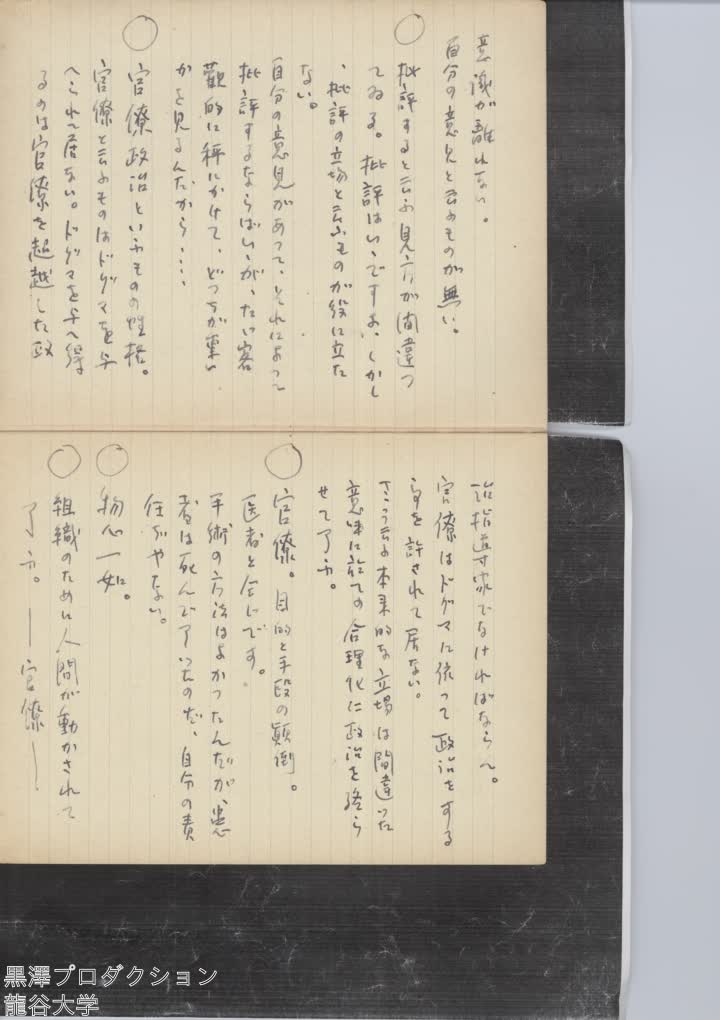 意識が離れない。
自分の意見と云ふものが無い。
○ 批評すると云ふ見方が間違つ
てゐる。批評はいゝですよ、しかし
、批評の立場と云ふものが役に立た
ない。
自分の意見があつて、それによつて
批評するならばいゝが、たゞ客
観的に秤にかけて、どつちが重い
かを見るんだから・・・・
○ 官僚政治といふものの性格。
官僚と云ふものはドグマを与
へられて居ない。ドグマを与へ得
るのは官僚を超越した政
治指導家でなければならん。
官僚はドグマに依つて政治をする
事を許されて居ない。
さう云ふ本来的な立場は間違つた
意味に於ての合理化に政治を終ら
せて了ふ。
○ 官僚。目的と手段の顚倒。
医者と仝じです。
手術の方法はよかつたんだが、患
者は死んで了つたのだ、自分の責
任ぢやない。
○ 物心一如。
○ 組織のために人間が動かされて
了ふ。―官僚―
黒澤プロダクション
龍谷大学